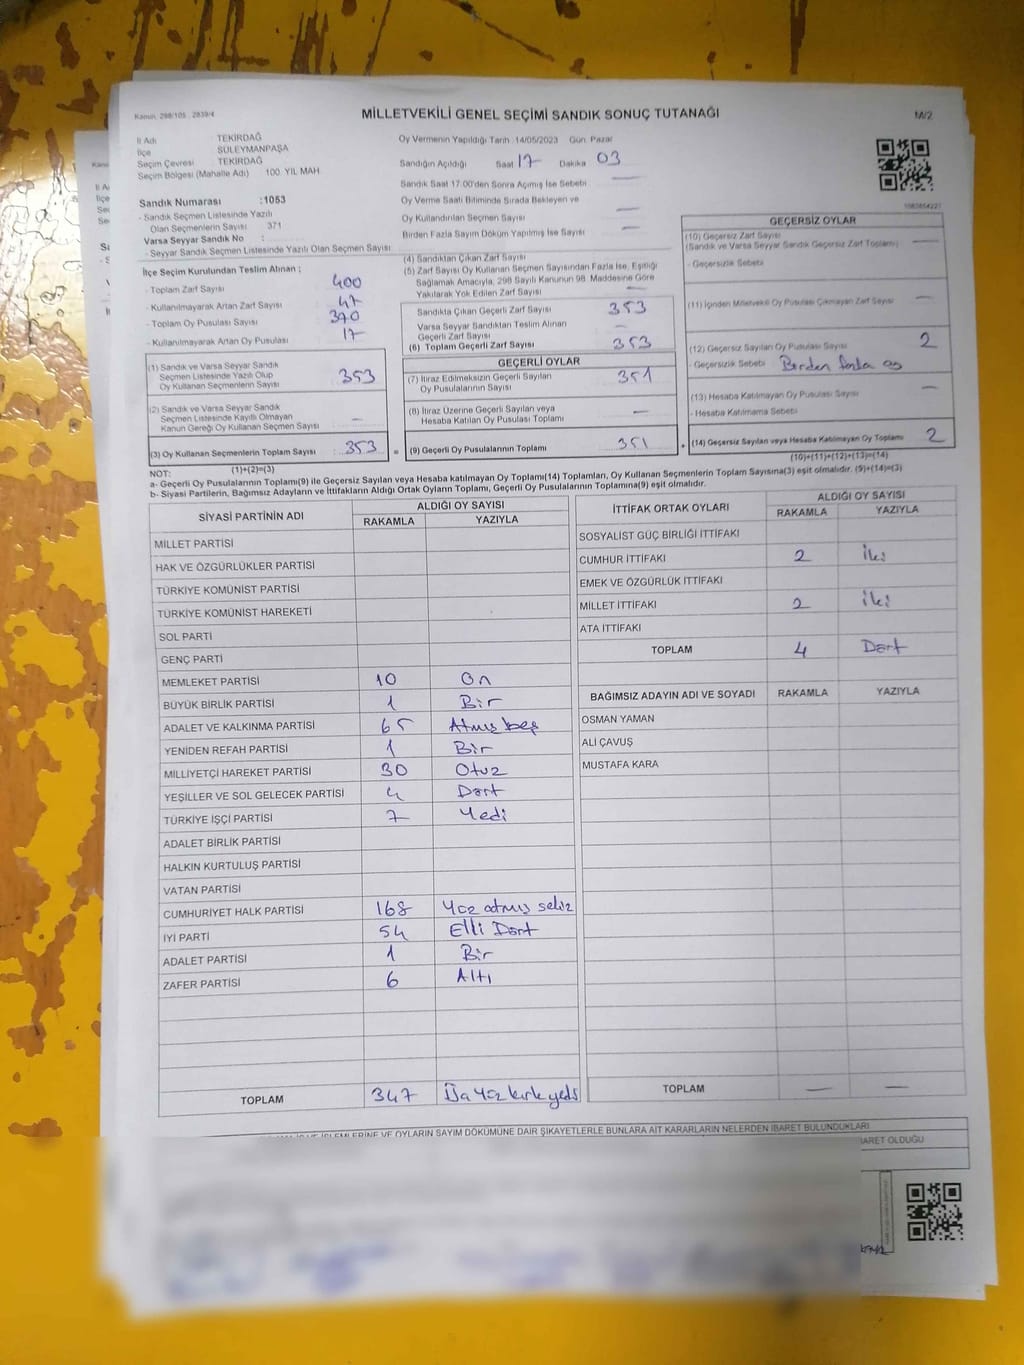 Kanun, 298/105 , 2839/4
MİLLETVEKİLİ GENEL SEÇİMİ SANDIK SONUÇ TUTANAĞI
M/2
İl Adı TEKİRDAĞ
İlçe SÜLEYMANPAŞA
Seçim Çevresi TEKİRDAĞ
Seçim Bölgesi (Mahalle Adı) 100. YIL MAH.
Oy Vermenin Yapıldığı Tarih :14/05/2023 Gün: Pazar
Sandığın Açıldığı Saat 17 Dakika 03
Sandık Saat 17:00'den Sonra Açılmış İse Sebebi —
Oy Verme Saati Bitiminde Sırada Bekleyen ve
Oy Kullandırılan Seçmen Sayısı —
Birden Fazla Sayım Döküm Yapılmış İse Sayısı —
Sandık Numarası :1053
- Sandık Seçmen Listesinde Yazılı
Olan Seçmenlerin Sayısı 371
Varsa Seyyar Sandık No :
- Seyyar Sandık Seçmen Listesinde Yazılı Olan Seçmen Sayısı:
İlçe Seçim Kurulundan Teslim Alınan ;
- Toplam Zarf Sayısı 400
- Kullanılmayarak Artan Zarf Sayısı 47
- Toplam Oy Pusulası Sayısı 370
- Kullanılmayarak Artan Oy Pusulası 17
(1) Sandık ve Varsa Seyyar Sandık
Seçmen Listesinde Yazılı Olup
Oy Kullanan Seçmenlerin Sayısı 353
(2) Sandık ve Varsa Seyyar Sandık
Seçmen Listesinde Kayıtlı Olmayan
Kanun Gereği Oy Kullanan Seçmen Sayısı —
(3) Oy Kullanan Seçmenlerin Toplam Sayısı 353 =
(1)+(2)=(3)
(4) Sandıktan Çıkan Zarf Sayısı
(5) Zarf Sayısı Oy Kullanan Seçmen Sayısından Fazla İse, Eşitliği
Sağlamak Amacıyla, 298 Sayılı Kanunun 98. Maddesine Göre
Yakılarak Yok Edilen Zarf Sayısı —
Sandıkta Çıkan Geçerli Zarf Sayısı 353
Varsa Seyyar Sandıktan Teslim Alınan
Geçerli Zarf Sayısı —
(6) Toplam Geçerli Zarf Sayısı 353
GEÇERLİ OYLAR
(7) İtiraz Edilmeksizin Geçerli Sayılan
Oy Pusulalarının Sayısı 351
(8) İtiraz Üzerine Geçerli Sayılan veya
Hesaba Katılan Oy Pusulası Toplamı —
(9) Geçerli Oy Pusulalarının Toplamı 351 +
GEÇERSİZ OYLAR
(10) Geçersiz Zarf Sayısı
(Sandık ve Varsa Seyyar Sandık Geçersiz Zarf Toplamı) —
- Geçersizlik Sebebi
(11) İçinden Milletvekili Oy Pusulası Çıkmayan Zarf Sayısı —
(12) Geçersiz Sayılan Oy Pusulası Sayısı 2
- Geçersizlik Sebebi Birden fazla oy
(13) Hesaba Katılmayan Oy Pusulası Sayısı —
- Hesaba Katılmama Sebebi
(14) Geçersiz Sayılan veya Hesaba Katılmayan Oy Toplamı 2
(10)+(11)+(12)+(13)=(14)
NOT:
a- Geçerli Oy Pusulaları Toplamı(9) ile Geçersiz Sayılan veya Hesaba katılmayan Oy Toplamı(14) Toplamları, Oy Kullanan Seçmenlerin Toplam Sayısına(3) eşit olmalıdır. (9)+(14)=(3)
b- Siyasi Partilerin, Bağımsız Adayların ve İttifakların Aldığı Ortak Oyların Toplamı, Geçerli Oy Pusulalarının Toplamına(9) eşit olmalıdır.
SİYASİ PARTİNİN ADI ALDIĞI OY SAYISI
RAKAMLA YAZIYLA
MİLLET PARTİSİ
HAK VE ÖZGÜRLÜKLER PARTİSİ
TÜRKİYE KOMÜNİST PARTİSİ
TÜRKİYE KOMÜNİST HAREKETİ
SOL PARTİ
GENÇ PARTİ
MEMLEKET PARTİSİ 10 On
BÜYÜK BİRLİK PARTİSİ 1 Bir
ADALET VE KALKINMA PARTİSİ 65 Atmış beş
YENİDEN REFAH PARTİSİ 1 Bir
MİLLİYETÇİ HAREKET PARTİSİ 30 Otuz
YEŞİLLER VE SOL GELECEK PARTİSİ 4 Dört
TÜRKİYE İŞÇİ PARTİSİ 7 Yedi
ADALET BİRLİK PARTİSİ
HALKIN KURTULUŞ PARTİSİ
VATAN PARTİSİ
CUMHURİYET HALK PARTİSİ 168 Yüz atmış sekiz
İYİ PARTİ 54 Elli Dört
ADALET PARTİSİ 1 Bir
ZAFER PARTİSİ 6 Altı
TOPLAM 347 Üç Yüz kırk yedi
İTTİFAK ORTAK OYLARI ALDIĞI OY SAYISI
RAKAMLA YAZIYLA
SOSYALİST GÜÇ BİRLİĞİ İTTİFAKI
CUMHUR İTTİFAKI 2 İki
EMEK VE ÖZGÜRLÜK İTTİFAKI
MİLLET İTTİFAKI 2 İki
ATA İTTİFAKI
TOPLAM 4 Dört
BAĞIMSIZ ADAYIN ADI VE SOYADI RAKAMLA YAZIYLA
OSMAN YAMAN
ALİ ÇAVUŞ
MUSTAFA KARA
TOPLAM — —
İŞLEMLERİNE VE OYLARIN SAYIM DÖKÜMÜNE DAİR ŞİKAYETLERLE BUNLARA AİT KARARLARIN NELERDEN İBARET BULUNDUKLARI
İBARET OLDUĞU